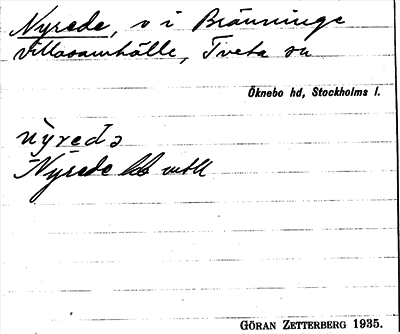 Nyrede, v i Brännings
villasamhälle, Tveta sn
Öknebo hd, Stockholms l.
Nyrede
GÖRAN ZETTERBERG 1935.